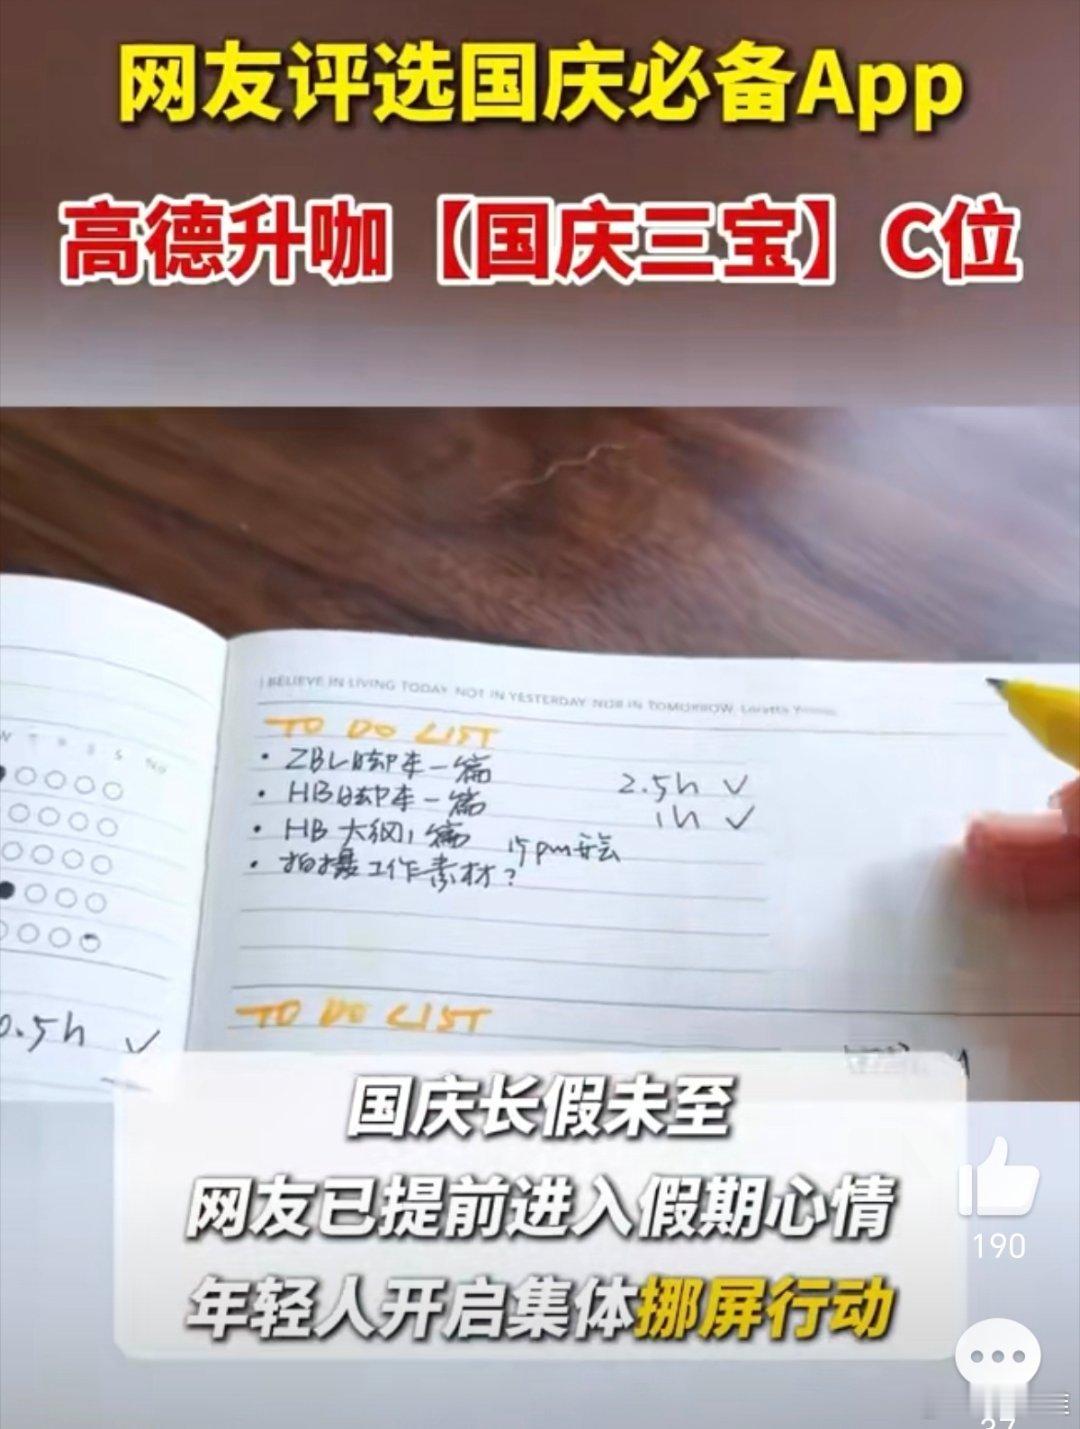 网友评选国庆必备App
高德升咖【国庆三宝】C位
I BELIEVE IN LIVING TODAY. NOT IN YESTERDAY, NOR IN TOMORROW. Loretta Young
TO DO LIST
• ZBL 一篇 2.5h ✓
• HB 一篇 1h ✓
• HB 大纲1篇 15pm开会
• 拍摄工作素材?
TO DO LIST
0.5h ✓
国庆长假未至
网友已提前进入假期心情
年轻人开启集体挪屏行动
190
37